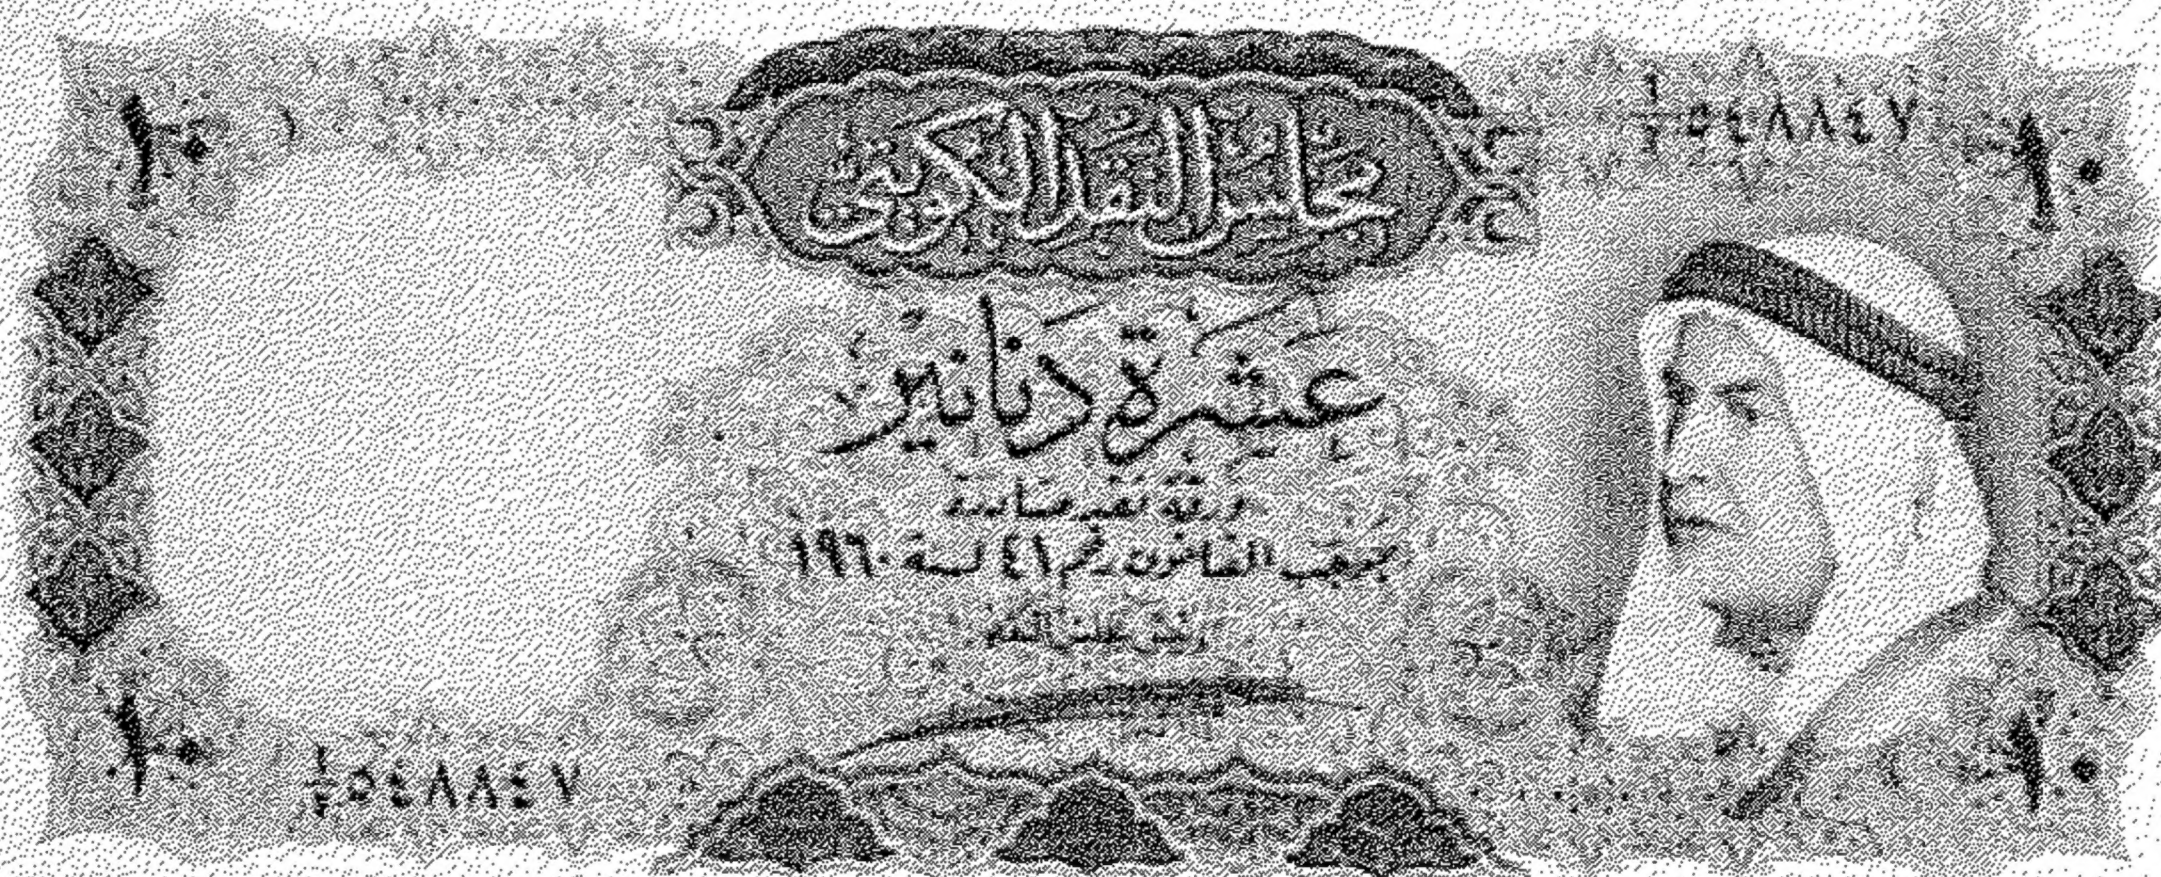 ١٠
١/أ ٥٤٨٨٤٧
١٠
مجلس النقد الكويتي
عَشَرَة دَنَانِيْر
ورقة نقد صادرة
بموجب القانون رقم ٤١ لسنة ١٩٦٠
رئيس مجلس النقد
١٠
١/أ ٥٤٨٨٤٧
١٠